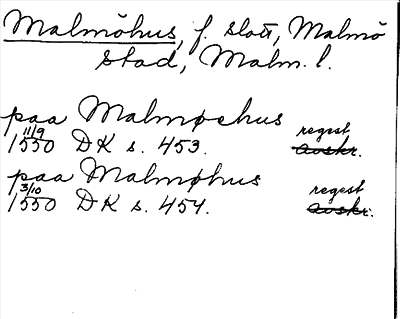 Malmöhus, f. slott, Malmö
stad, Malm. l.
paa Malmøehus
1550 11/9 DK s. 453. regest avskr.
paa Malmøhus
1550 3/10 DK s. 454. regest avskr.